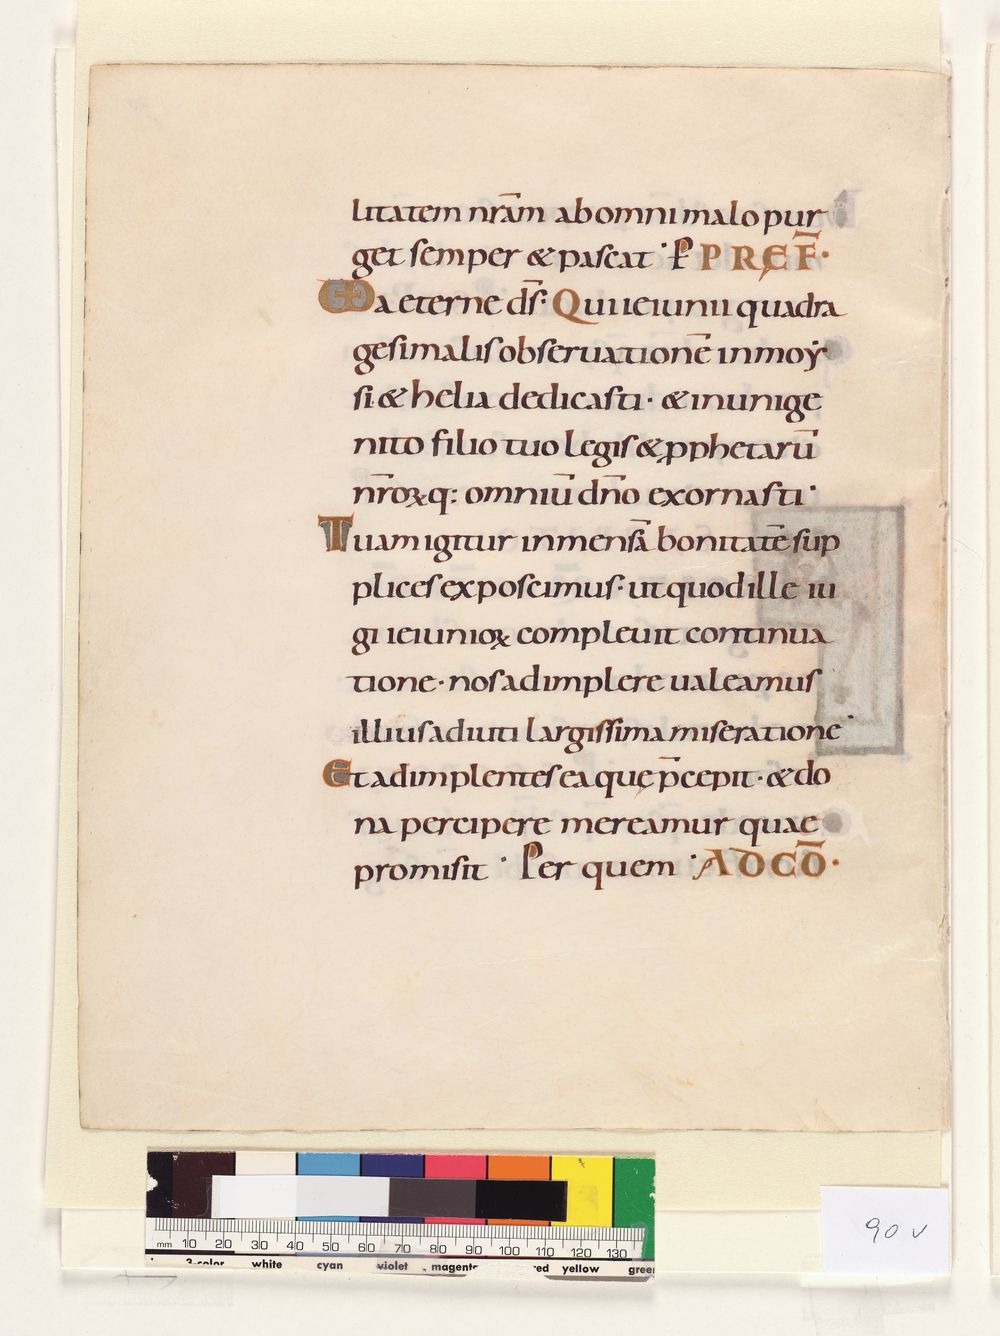 litatem nr̄am ab omni malo pur
get semper & pascat · P PREF̄·
UD a eterne dс̄· Qui ieiunii quadra
gesimalis obseruationē in moy
si & helia dedicasti· & in unige
nito filio tuo legis & pphetarū
nr̄oꝝq: omniū dn̄o exornasti·
Tuam igitur inmensā bonitatē sup
plices exposcimus· ut quod ille iu
gi ieiunioꝝ compleuit continua
tione· nos adimplere ualeamus
illius adiuti largissima miseratione·
Et adimplentes ea quę p̄cepit· & do
na percipere mereamur quae
promisit · Per quem · AD CŌ·
90 v
mm 10 20 30 40 50 60 70 80 90 100 110 120 130
3-color white cyan violet magenta red yellow green